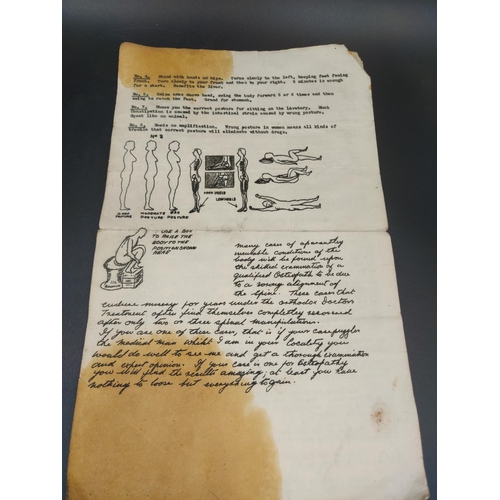 No. 5, Stand with hands on hips. Turn slowly to the left, keeping feet facing
front. Turn slowly to your front and then to your right. 5 minutes is enough
for a start. Benefits the liver.
No. 6, Raise arms above head, swing the body forward 5 or 6 times and then
bring to touch the feet. Good for stomach.
No. 7, Shows you the correct posture for sitting on the lavatory. Much
Constipation is caused by the intestinal strain caused by wrong posture.
Squat like an animal.
No. 8, Needs no amplification. Wrong posture in women means all kinds of
trouble that correct posture will eliminate without drugs.
No 8
GOOD POSTURE
MODERATE POSTURE
BAD POSTURE
HIGH HEELS
LOW HEELS
USE A BOX
TO RAISE THE
BODY TO THE
POSITION SHOWN
HERE
Many cases of apparently
incurable conditions of the
body will be found upon
the skilled examination of a
Qualified Osteopath to be due
to a wrong alignment of
the spine. These cases that
endure misery for years under the orthodox Doctors
Treatment often find themselves completely recovered
after only two or three spinal manipulations.
If you are one of these cases, that is if your case puzzles
the medical man whilst I am in your Locality you
would do well to see me and get a thorough examination
and expert opinion. If your case is one for Osteopathy
you will find the results amazing; at least you have
nothing to lose but everything to gain.